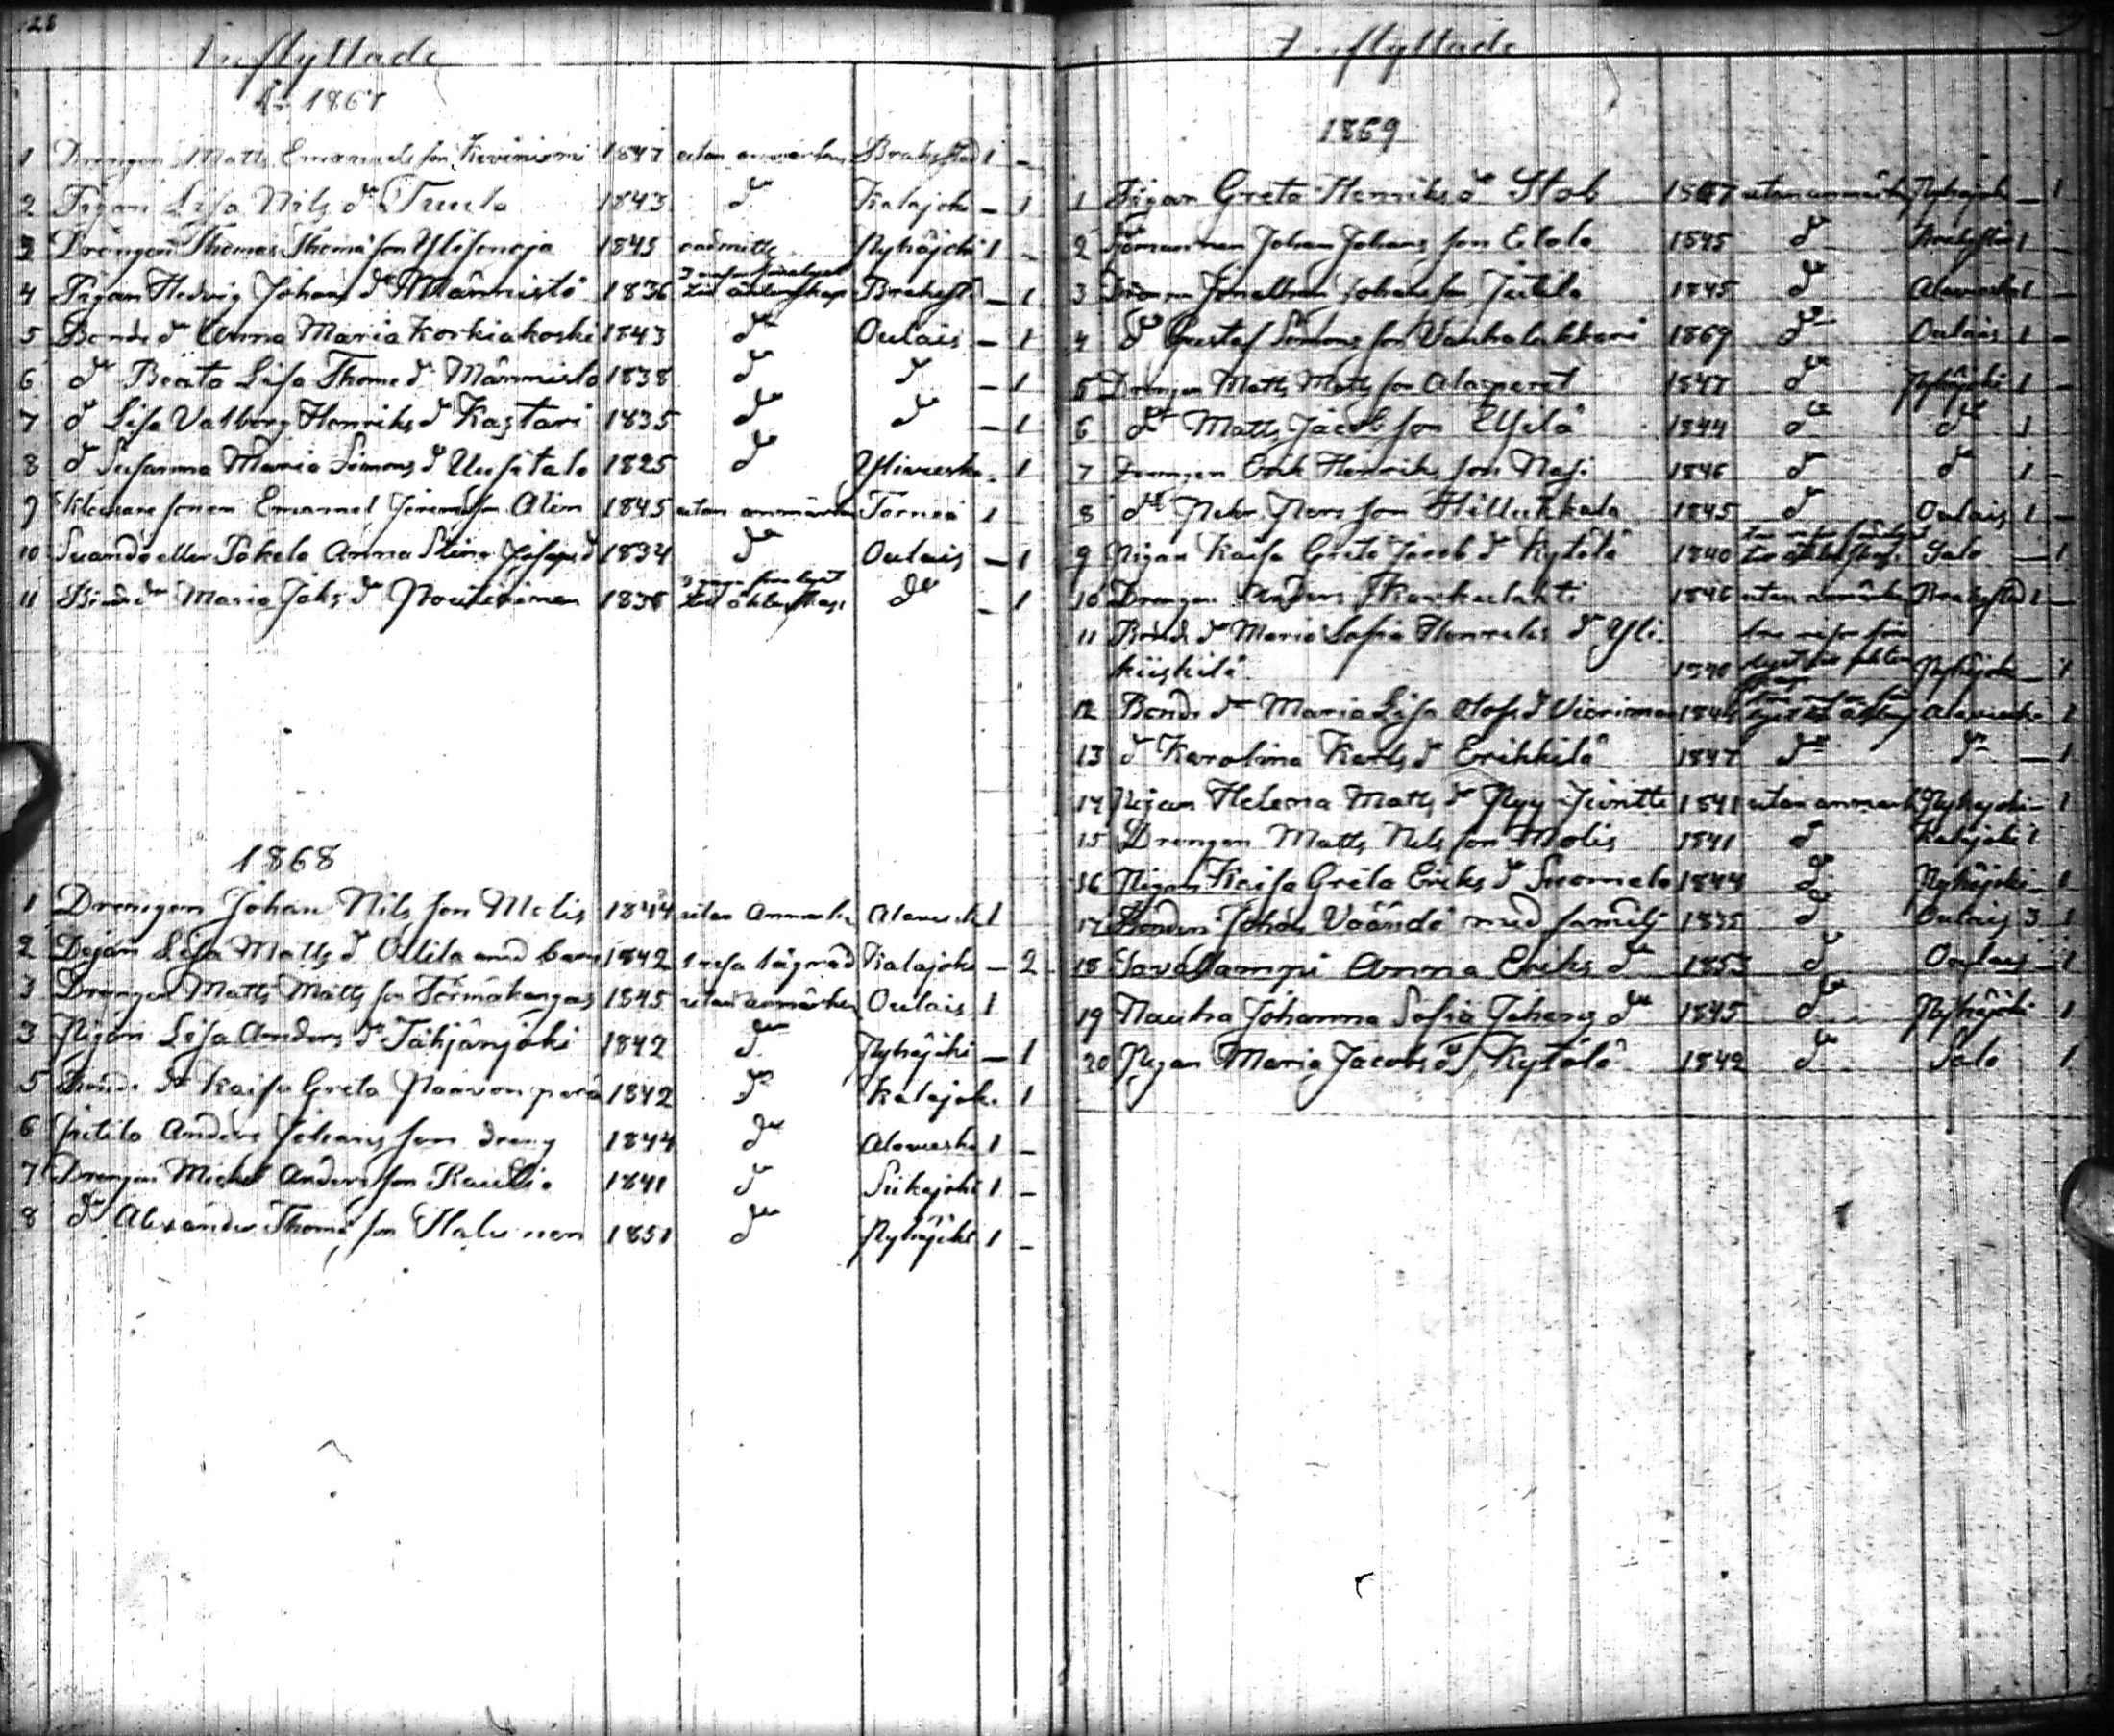 28
Inflyttade
År 1867
1 Drengen Matts Emanuelsson Kiviniemi 1847 utan anmärkn Brahestad 1 –
2 Pigan Lisa Nils dr Tuula 1843 dr Kalajoki – 1
3 Drengen Thomas Thomæ son Ylisenoja 1845 oadmitte Pyhäjoki 1 –
4 Pigan Hedvig Johans dr Männistö 1836 till äktenskap Brahest. – 1
5 Bonde dr Anna Maria Korkiakoski 1843 dr Oulais – 1
6 dr Beata Lisa Thome dr Männistö 1838 dr dr – 1
7 dr Lisa Valborg Henriks dr Kastari 1835 dr dr – 1
8 dr Susanna Maria Simons dr Uusitalo 1825 dr Ylivieska – 1
9 Emanuel Jeremias son Alin 1845 utan anmärkn Torneå 1
10 Suando eller Pokela Anna Stina Josefs dr 1834 dr Oulais – 1
11 Bonde dr Maria Johs dr Poutiainen 1836 till äktenskap dr – 1
1868
1 Drengen Johan Nils son Molis 1844 utan Anmärkn Alavieska 1
2 Pigan Lisa Matts dr Ollila med barn 1842 1 resa lägrad Kalajoki – 2
3 Drengen Matts Matts son Törmäkangas 1845 utan anmärkn Oulais 1
3 Pigan Lisa Anders dr Tähjänjoki 1842 dr Pyhäjoki – 1
5 Bonde dr Kaisa Greta Paavonperä 1842 dr Kalajoki 1
6 Jutila Anders Johans son dreng 1844 dr Alavieska 1 –
7 Drengen Michel Anders son Rautio 1841 dr Siikajoki 1 –
8 dr Alexander Thomæ son Halunen 1851 dr Pyhäjoki 1 –
Inflyttade
1869
1 Pigan Greta Henriks dr Stob 1847 utan anmärk Pyhäjoki – 1
2 Johan Johans son Eilola 1845 dr Brahestad 1 –
3 Jonathan Johansson Jutila 1845 dr Alavieska 1 –
4 dr Gustaf Simons son Vanhalakkari 1869 dr Oulais 1 –
5 Drengen Matts Matts son Alaperet 1847 dr Pyhäjoki 1 –
6 dr Matts Jacobs son Elfilä 1844 dr dr 1
7 Drengen Erik Henriks son Nasi 1846 dr dr 1 –
8 dr Petter Pers son Hillukkala 1845 dr Oulais 1 –
9 Pigan Kaisa Greta Jacob dr Kytölä 1840 till äktenskap Salo – 1
10 Drengen Anders Kaukulahti 1846 utan anmärkn Brahestad 1 –
11 Bonde dr Maria Sofia Henriks dr Yli-
kiiskilä Pyhäjoki – 1
12 Bonde dr Maria Lisa Olofs dr Viiriman Alavieska 1
13 dr Karolina Karls dr Erikkilä 1847 dr dr – 1
14 Pigan Helena Matts dr Pyy-Juntti 1841 utan anmärk Pyhäjoki – 1
15 Drengen Matts Nils son Molis 1841 dr Kalajoki 1
16 Pigan Kaisa Greta Eriks dr Suomela 1844 dr Pyhäjoki – 1
17 Bonden Johan Väändö med familj 1835 dr Oulais 3 1
18 Savolampi Anna Eriks dr 1853 dr Oulais – 1
19 Nauha Johanna Sofia Johans dr 1845 dr Pyhäjoki 1
20 Pigan Maria Jacobs dr Kytölä 1842 dr Salo 1